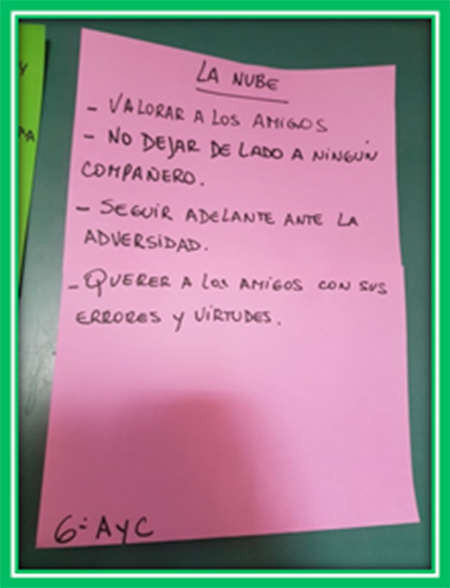 LA NUBE
- VALORAR A LOS AMIGOS
- NO DEJAR DE LADO A NINGÚN
COMPAÑERO.
- SEGUIR ADELANTE ANTE LA
ADVERSIDAD.
- QUERER A LOS AMIGOS CON SUS
ERRORES Y VIRTUDES.
6º A y C